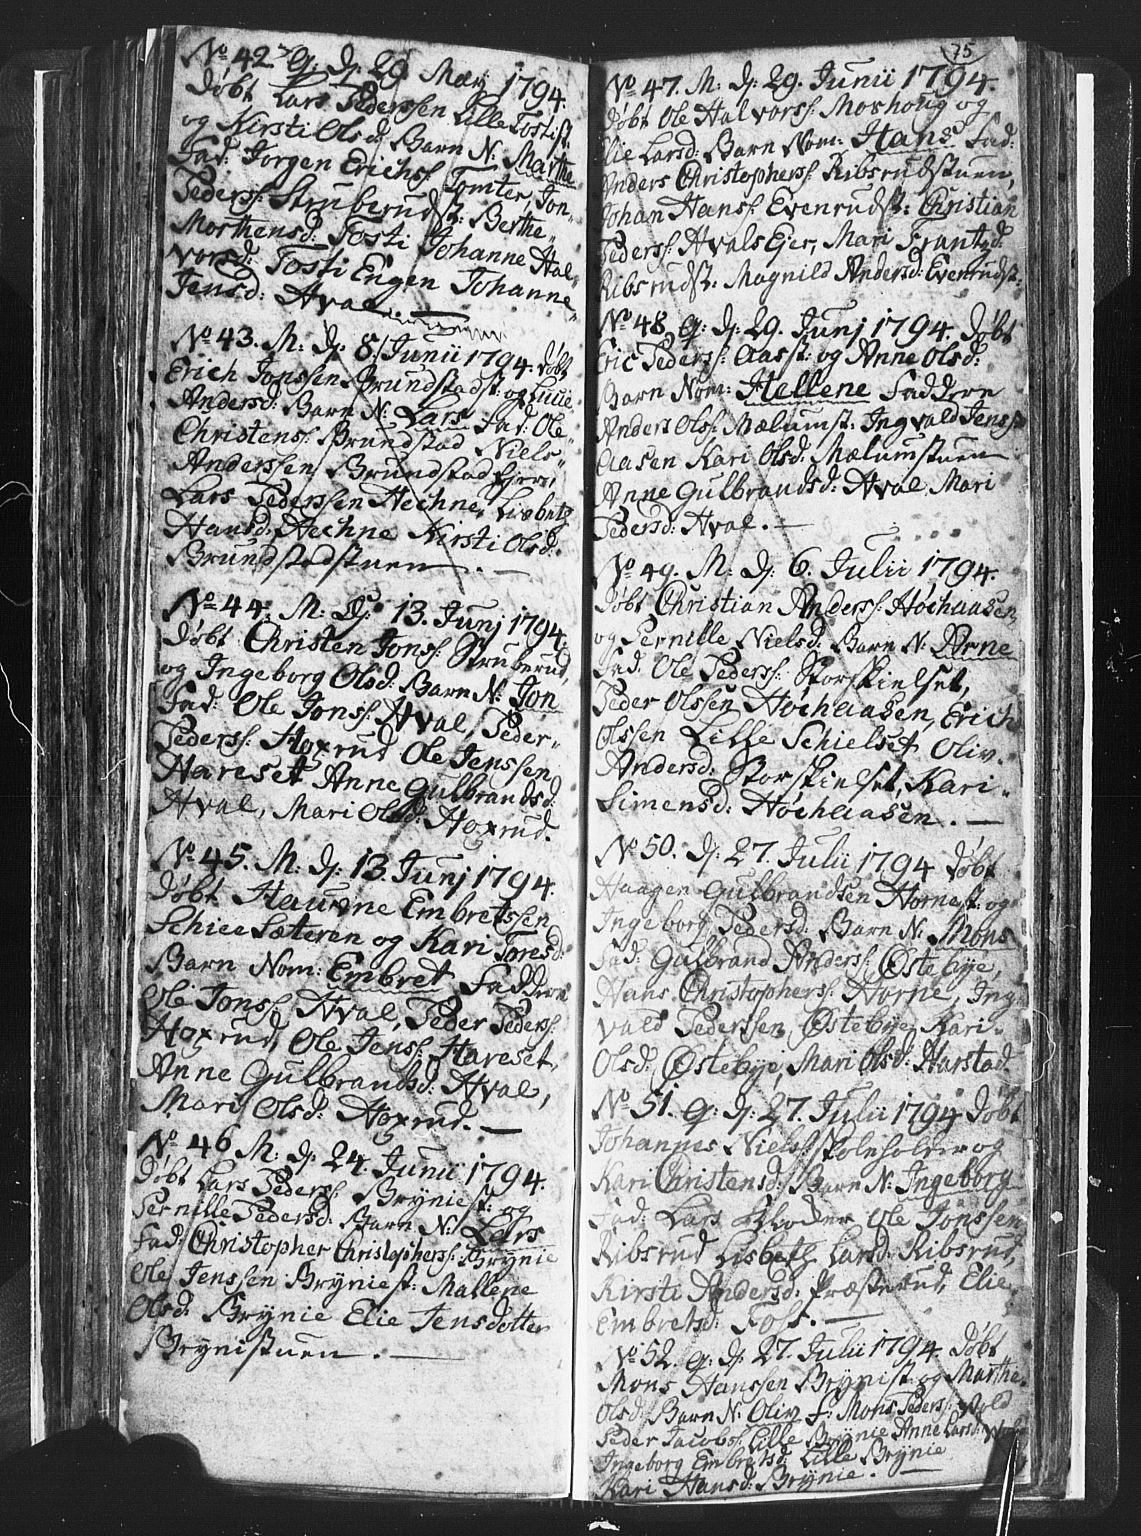 No 42. Q. Dj: 29 Maij 1794.
Døbt Lars Pederssen Lille Tostist
og Kirsti Olsd: Barn N: Marthe
Fad: Jorgen Erichs: Tomter, Jon
Peders: Struberudst: Berthe
Morthensd: Tosti Johanne Hal-
vorsd: Tosti Engen Johanne
Jensd: Hval.
No 43. M. Dj: 8. Junii 1794. Døbt
Erich Jonssen Brundstadst: og
Andersd: Barn N: Lars Fad: Ole
Christens: Brundstad Niels
Anderssen Brundstad
Lars Pederssen Hechne, Lisbeth
Hansd: Hechne Kirsti Olsd:
Brundstadstuen.
No 44. M. Dj: 13. Junj 1794.
Døbt Christen Jons: Struberud,
og Ingeborg Olsd: Barn N: Jon
Fad: Ole Jons: Hval, Peder
Peders: Hoxrud Ole Jenssen
Hareset Anne Gulbrandsd:
Hval, Mari Olsd: Hoxrud.
No 45. M. Dj: 13 Junj 1794.
Døbt Embretssen
Schiee Sæteren og Kari Toresd:
Barn Nom: Embret Fadderne
Ole Jons: Hval, Peder Peders:
Hoxrud, Ole Jens: Hareset,
Anne Gulbrandsd: Hval,
Mari Olsd: Hoxrud.
No 46 M. Dj: 24 Junii 1794.
Døbt Lars Peders: Brÿniest: og
Pernille Pedersd: Barn N: Lars
Fad: Christopher Christophers: Brÿnie
Ole Jenssen Brÿniest: Mallene
Olsd: Brÿnie Elie Jensdotter
Brÿnistuen.
75
No 47. M. Dj: 29. Junii 1794.
Døbt Ole Halvors: Moshoug og
Elie Larsd: Barn Nom: Hans Fad:
Anders Christophers: Ribsrudstuen,
Johan Hans: Evenrudst: Christian
Peders: Hvals Eger, Mari Frantzd:
Ribsrudst: Magnild Andersd: Evenrudst:
No 48. Q. Dj: 29. Junj 1794. Døbt
Eric Peders: Aasst: og Anne Olsd:
Barn Nom: Hellene Fadderne
Anders Ols: Mælumst: Ingvald Jens:
Aasen Kari Olsd: Mælumstuen
Anne Gulbrandsd: Hval Mari
Pedersd: Hval.
No 49. M. Dj: 6. Julii 1794.
Døbt Christian Anders: Høchaasen
og Pernille Nielsd: Barn N: Arne
Fad: Ole Peders: Storskielset,
Peder Olssen Høchaasen, Erich
Olssen Lille Schielset Oliv
Andersd: Storskielset, Kari
Simensd: Høchaasen.
No 50. Dj: 27. Julii 1794 Døbt
Haagen Gulbrandsen Hornest: og
Ingeborg Pedersd: Barn N: Mons
Fad: Gulbrand Anders: Østebÿe,
Hans Christophers: Horne, Ing-
vald Pederssen Østebÿe, Kari
Olsd: Østebÿe, Mari Olsd: Harstad.
No 51. Q. Dj: 27. Julii 1794 Døbt
Johannes Niels: Skoleholder og
Kari Christensd: Barn N: Ingeborg
Fad: Lars Ole Jonssen
Ribsrud Lisbeth Larsd: Ribsrud,
Kirsti Andersd: Præsterud, Elie
Embretsd: Foss.
No 52. Q. Dj: 27. Julii 1794 Døbt
Mons Hanssen Brÿnist: og Marthe
Olsd: Barn N: Oliv F: Mons Peders: Vold
Peder Jacobs: Lille Brÿnie Anne Larsd:
Ingeborg Embretsd: Lille Brÿnie
Kari Hansd: Brÿnie.